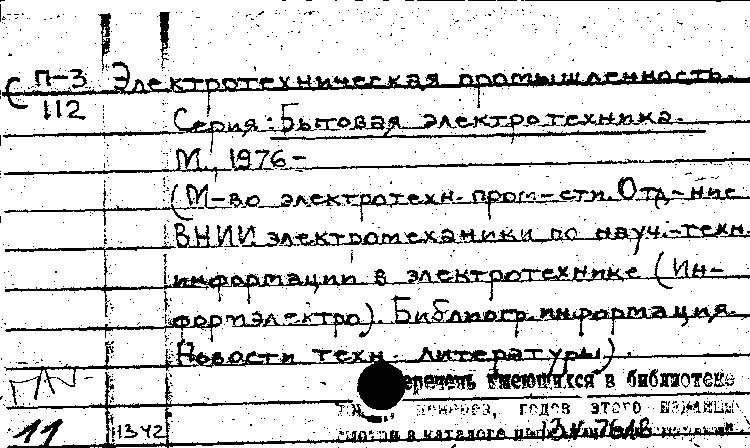 С П-3 Электротехническая промышленность.
112
Серия: Бытовая электротехника.
М., 1976-
(М-во электротехн. пром-сти. Отд-ние
ВНИИ электромеханики по науч.-техн.
информации в электротехнике (Ин-
формэлектро). Библиогр. информация.
Новости техн. литературы).
перечень имеющихся в библиотеке
номеров, годов этого издания
11 1342 смотри в каталоге